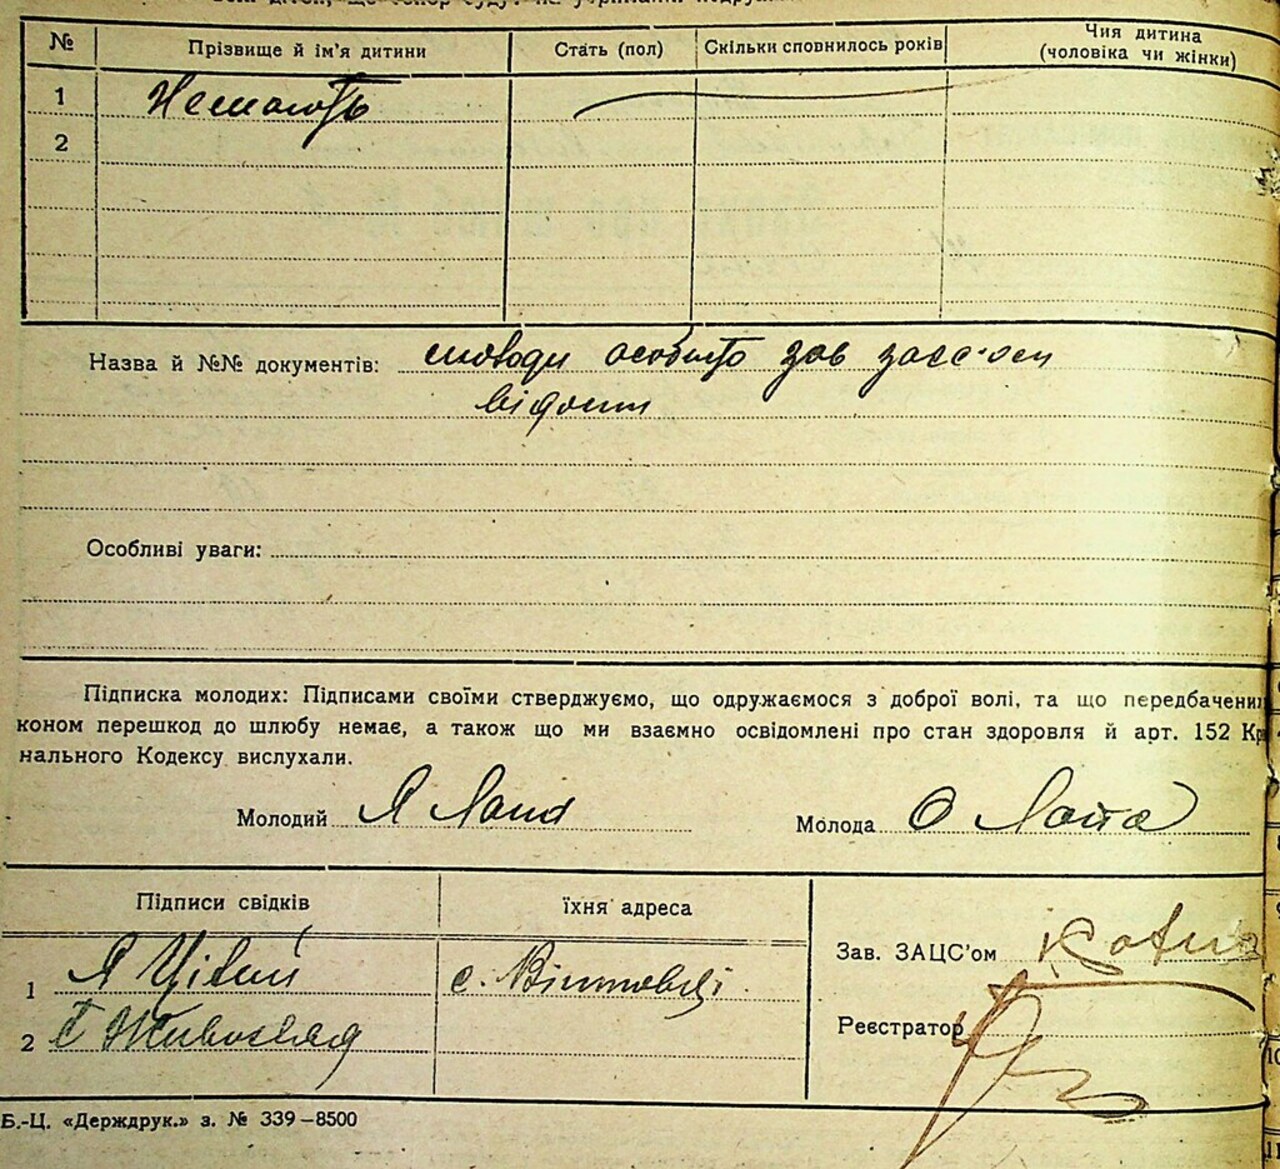 № Прізвище й ім'я дитини Стать (пол) Скільки сповнилось років Чия дитина (чоловіка чи жінки)
1 Немають
2
Назва й №№ документів: особисто зав
відомі
Особливі уваги:
Підписка молодих: Підписами своїми стверджуємо, що одружаємося з доброї волі, та що передбачених
коном перешкод до шлюбу немає, а також що ми взаємно освідомлені про стан здоровля й арт. 152 Кри
нального Кодексу вислухали.
Молодий Я Лапа Молода О Лапа
Підписи свідків їхня адреса
Зав. ЗАЦС'ом
1 Я Цівий с.
2
Реєстратор
Б.-Ц. «Держдрук.» з. № 339–8500